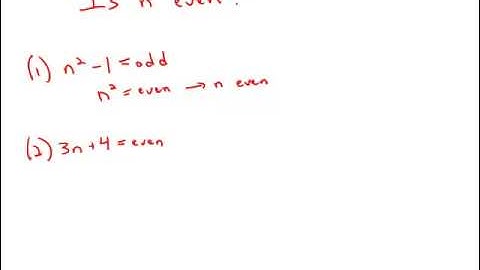 Is n even?
(1) n² - 1 = odd
n² = even → n even
(2) 3n + 4 = even